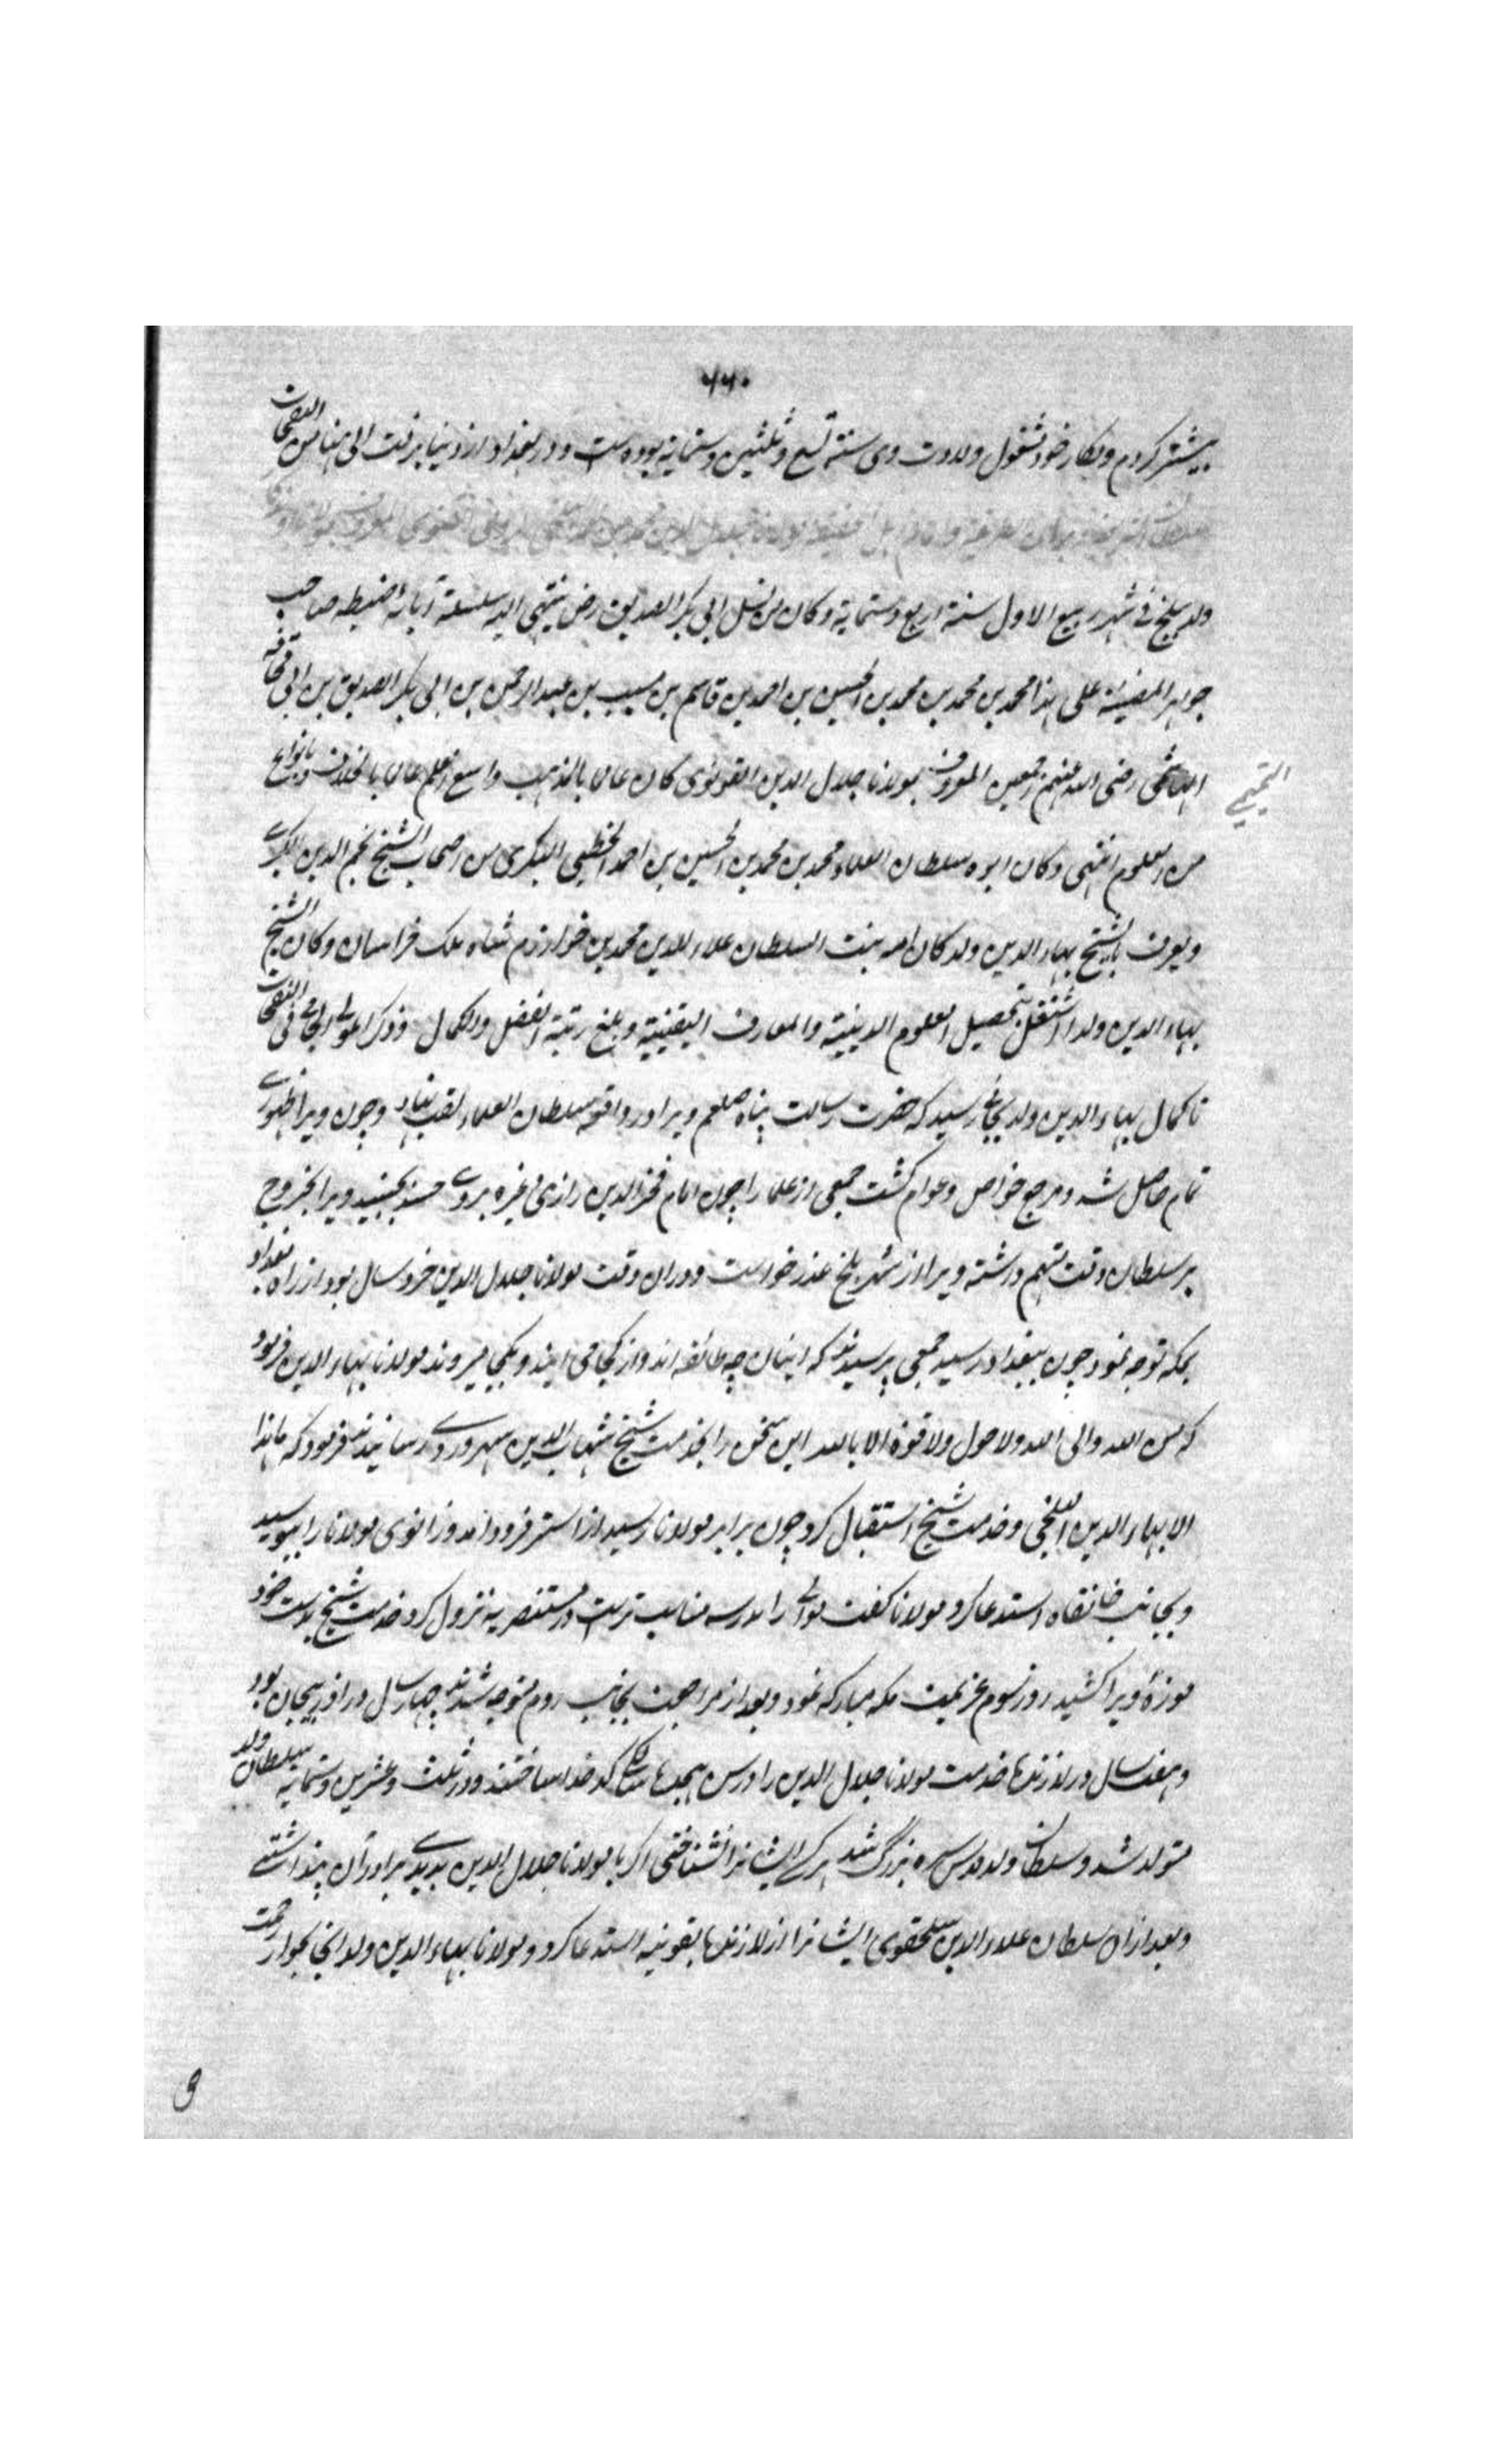 ۶۶۰
بیشتر کردم و بکار خود مشغول ولادت وی سنة تسع و ثلثین و ستمایة بوده است و در بغداد از دنیا برفت الی هنا من النفحات
ولد ببلخ فی شهر ربیع الاول سنة اربع و ستمایة و کان من نسل ابی بکر الصدیق رض ینتهی الیه سلسلة آبائه ضبطه صاحب
جواهر المضیئة علی هذا محمد بن محمد بن محمد بن الحسین بن احمد بن قاسم بن مسیب بن عبد الرحمن بن ابی بکر الصدیق بن ابی قحافة
الهاشمی رضی الله عنهم اجمعین المعروف بمولانا جلال الدین القونوی کان عالما بالمذهب واسع العلم عالما بالخلاف و بانواع
التمیمی
من العلوم انتهی و کان ابوه سلطان العلماء محمد بن محمد بن الحسین بن احمد الخطیبی البکری من اصحاب الشیخ نجم الدین الکبری
و یعرف بالشیخ بهاء الدین ولد کان امه بنت السلطان علاء الدین محمد بن خوارزم شاه ملک خراسان و کان الشیخ
بهاء الدین ولد اشتغل بتحصیل العلوم الدینیة والمعارف الیقینیة و بلغ رتبة الفضل والکمال و ذکر المولی الجامی فی النفحات
تا کمال بهاء الدین ولد بجائی رسید که حضرت رسالت پناه صلعم ویرا در واقعه سلطان العلماء لقب نهاد و چون ویرا ظهوری
تمام حاصل شد و مرجع خواص و عوام گشت جمعی از علما را چون امام فخر الدین رازی و غیره بر وی حسد بجنبید ویرا بخروج
بر سلطان وقت متهم داشته ویرا از شهر بلخ عذر خواست و در ان وقت مولانا جلال الدین خرد سال بود از راه بغداد
بمکه توجه نمود چون ببغداد رسید جمعی پرسیدند که اینان چه طائفه اند و از کجا می ایند و بکجا میروند مولانا بهاء الدین فرمود
که من الله و الی الله ولا حول ولا قوة الا بالله این سخن را بخدمت شیخ شهاب الدین سهروردی رسانیدند فرمود که ما هذا
الا بهاء الدین البلخی و خدمت شیخ استقبال کرد چون برابر مولانا رسید از استر فرود آمد و زانوی مولانا را ببوسید
و بجانب خانقاه استدعا کرد مولانا گفت موالی را مدرسه مناسب ترست در مستنصریه نزول کرد خدمت شیخ بدست خود
موزهٔ ویرا کشید روز سوم عزیمت مکه مبارکه نمود و بعد از مراجعت بجانب روم متوجه شدند چهار سال در اذربیجان بود
و هفت سال در لارنده خدمت مولانا جلال الدین را در سن هجده سالگی کدخدا ساختند و در ثلث و عشرین و ستمایه سلطان ولد
متولد شد و سلطان ولد قدس سره بزرگ شد هر که ایشانرا نشناختی اگر با مولانا جلال الدین بدیدی برادران پنداشتی
و بعد ازان سلطان علاء الدین سلجقوی ایشانرا از لارنده بقونیه استدعا کرد و مولانا بهاء الدین ولد انجا بجوار رحمت